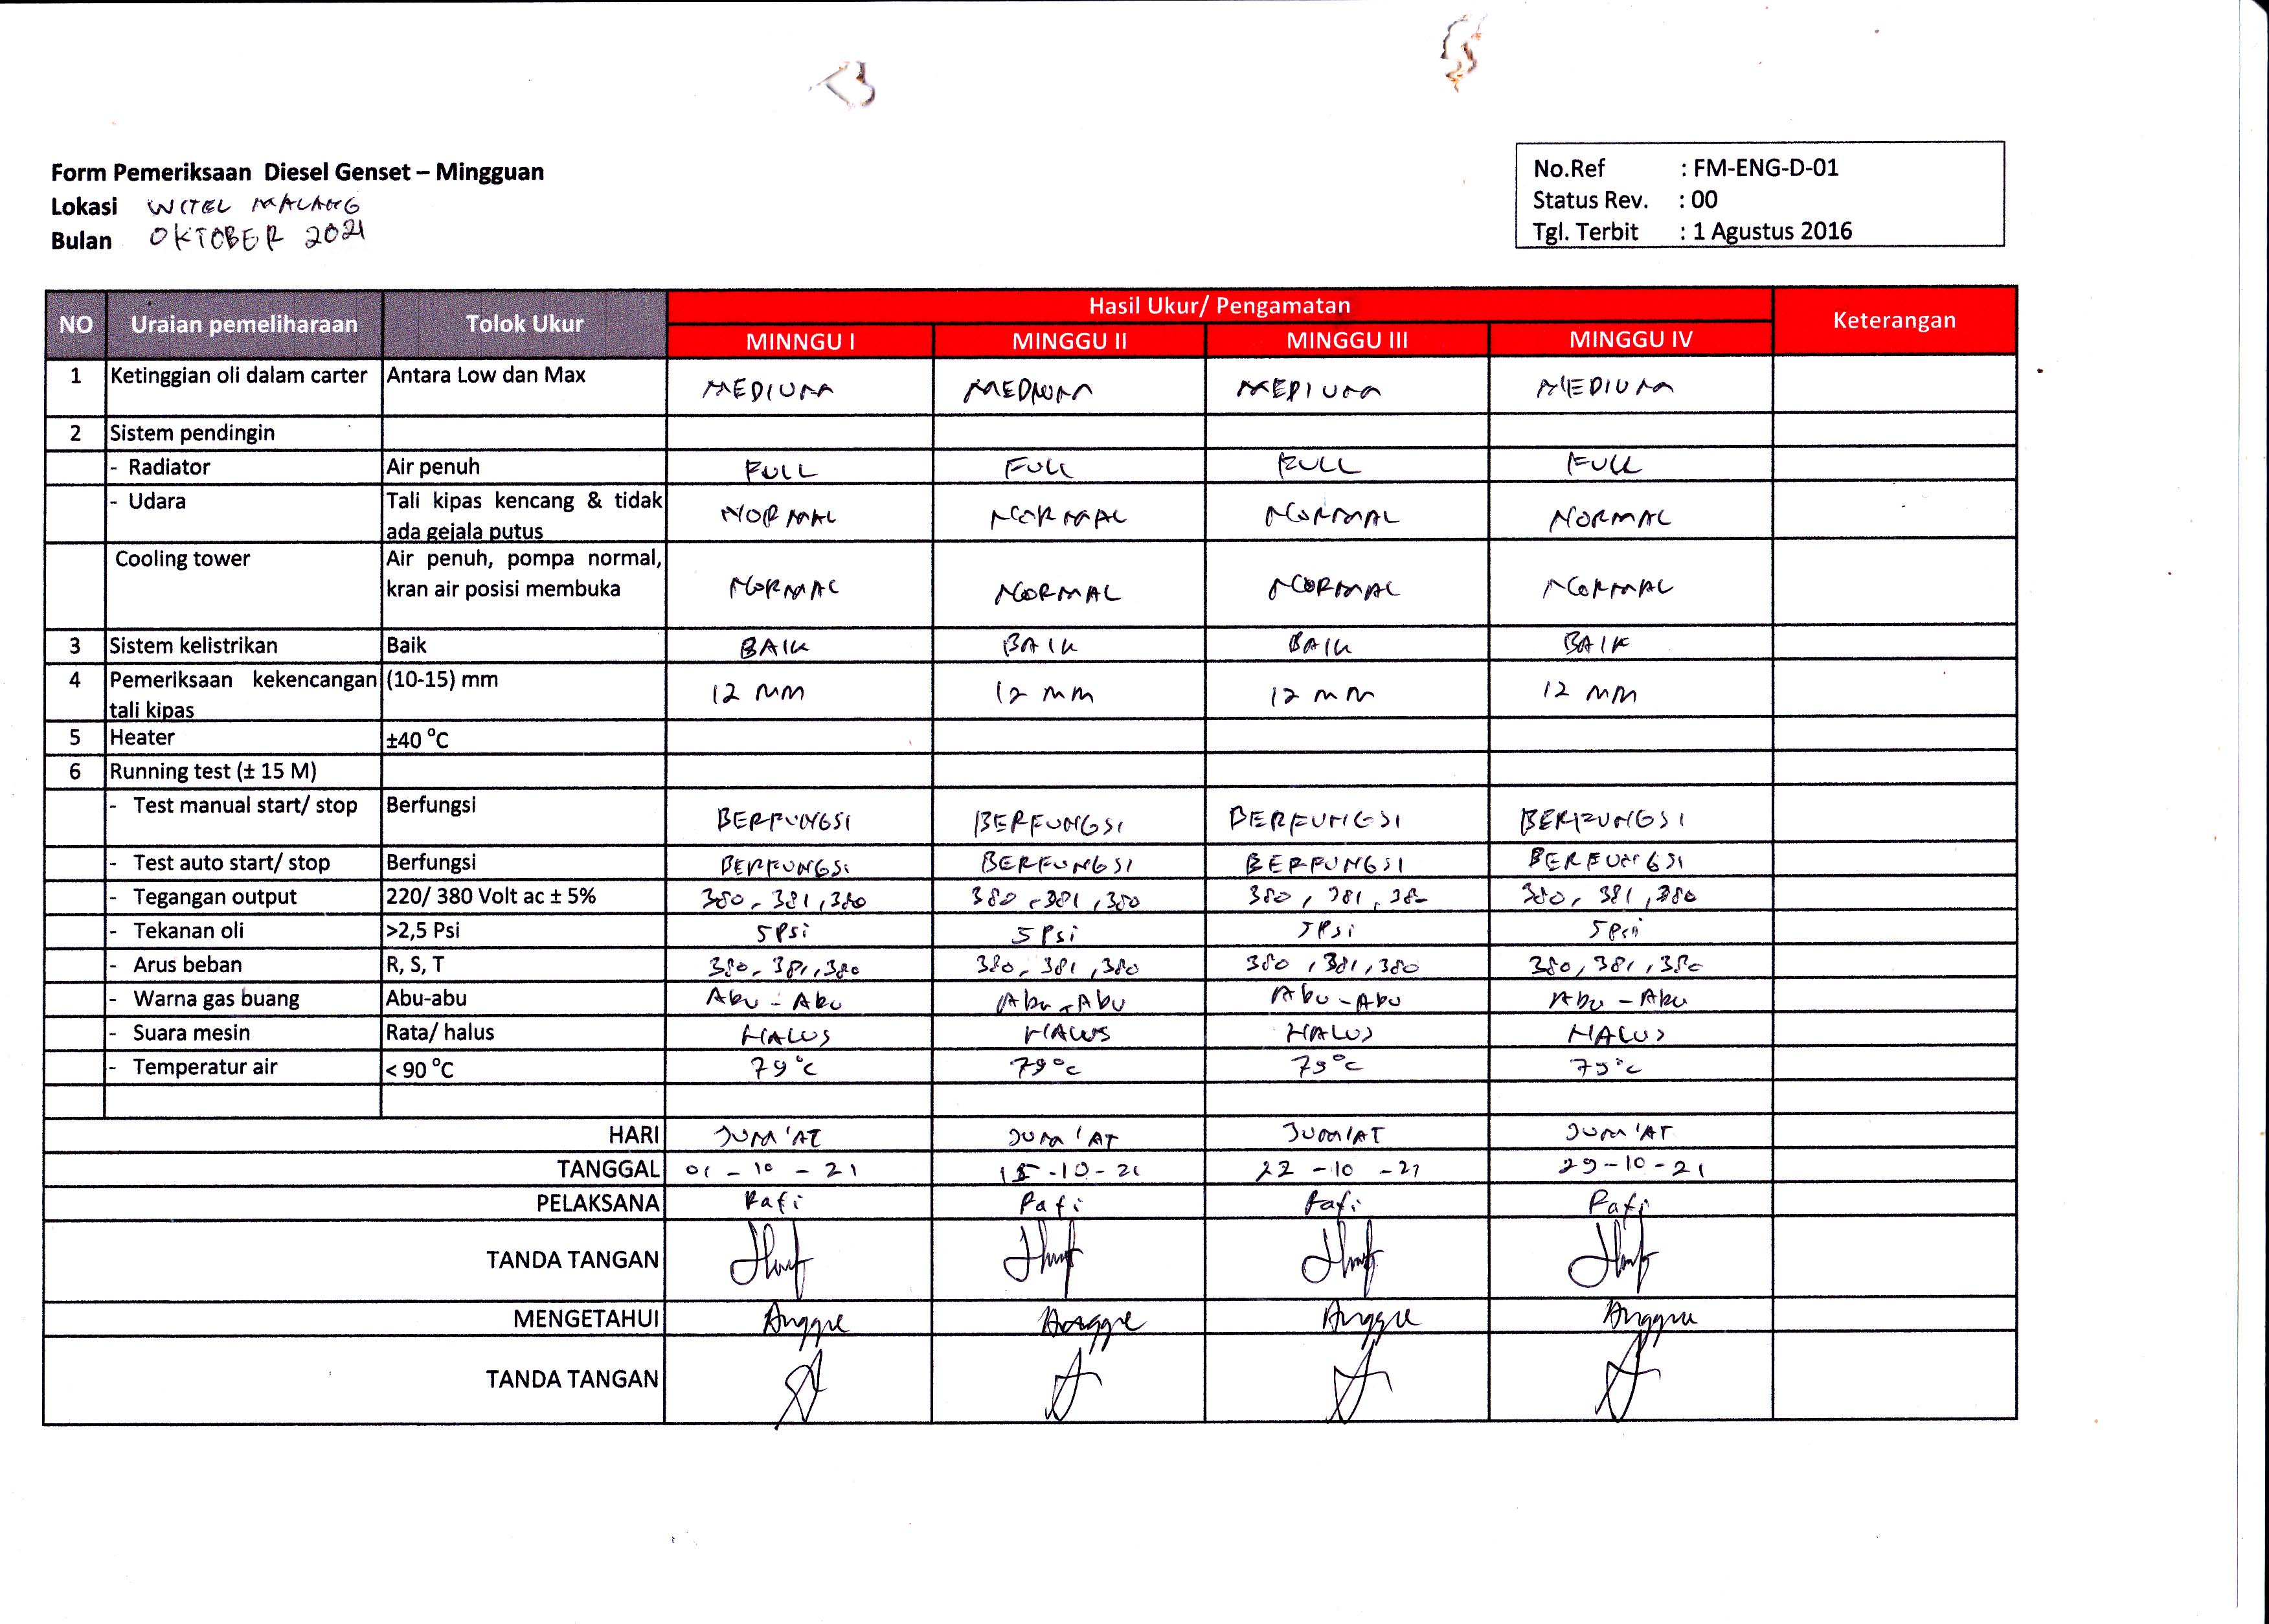 Form Pemeriksaan Diesel Genset – Mingguan
Lokasi WITEL MALANG
Bulan OKTOBER 2021
No.Ref : FM-ENG-D-01
Status Rev. : 00
Tgl. Terbit : 1 Agustus 2016
NO Uraian pemeliharaan Tolok Ukur Hasil Ukur/ Pengamatan Keterangan
MINNGU I MINGGU II MINGGU III MINGGU IV
1 Ketinggian oli dalam carter Antara Low dan Max MEDIUM MEDIUM MEDIUM MEDIUM
2 Sistem pendingin
- Radiator Air penuh FULL FULL FULL FULL
- Udara Tali kipas kencang & tidak ada gejala putus NORMAL NORMAL NORMAL NORMAL
Cooling tower Air penuh, pompa normal, kran air posisi membuka NORMAL NORMAL NORMAL NORMAL
3 Sistem kelistrikan Baik BAIK BAIK BAIK BAIK
4 Pemeriksaan kekencangan tali kipas (10-15) mm 12 MM 12 MM 12 MM 12 MM
5 Heater ±40 °C
6 Running test (± 15 M)
- Test manual start/ stop Berfungsi BERFUNGSI BERFUNGSI BERFUNGSI BERFUNGSI
- Test auto start/ stop Berfungsi BERFUNGSI BERFUNGSI BERFUNGSI BERFUNGSI
- Tegangan output 220/ 380 Volt ac ± 5% 380, 381, 380 380, 381, 380 380, 381, 380 380, 381, 380
- Tekanan oli >2,5 Psi 5 Psi 5 Psi 5 Psi 5 Psi
- Arus beban R, S, T 380, 381, 380 380, 381, 380 380, 381, 380 380, 381, 380
- Warna gas buang Abu-abu Abu - Abu Abu - Abu Abu - Abu Abu - Abu
- Suara mesin Rata/ halus HALUS HALUS HALUS HALUS
- Temperatur air < 90 °C 79°C 79°C 79°C 79°C
HARI JUM'AT JUM'AT JUM'AT JUM'AT
TANGGAL 01 - 10 - 21 15 - 10 - 21 22 - 10 - 21 29 - 10 - 21
PELAKSANA Rafi Rafi Rafi Rafi
TANDA TANGAN
MENGETAHUI Anggre Anggre Anggre Anggre
TANDA TANGAN